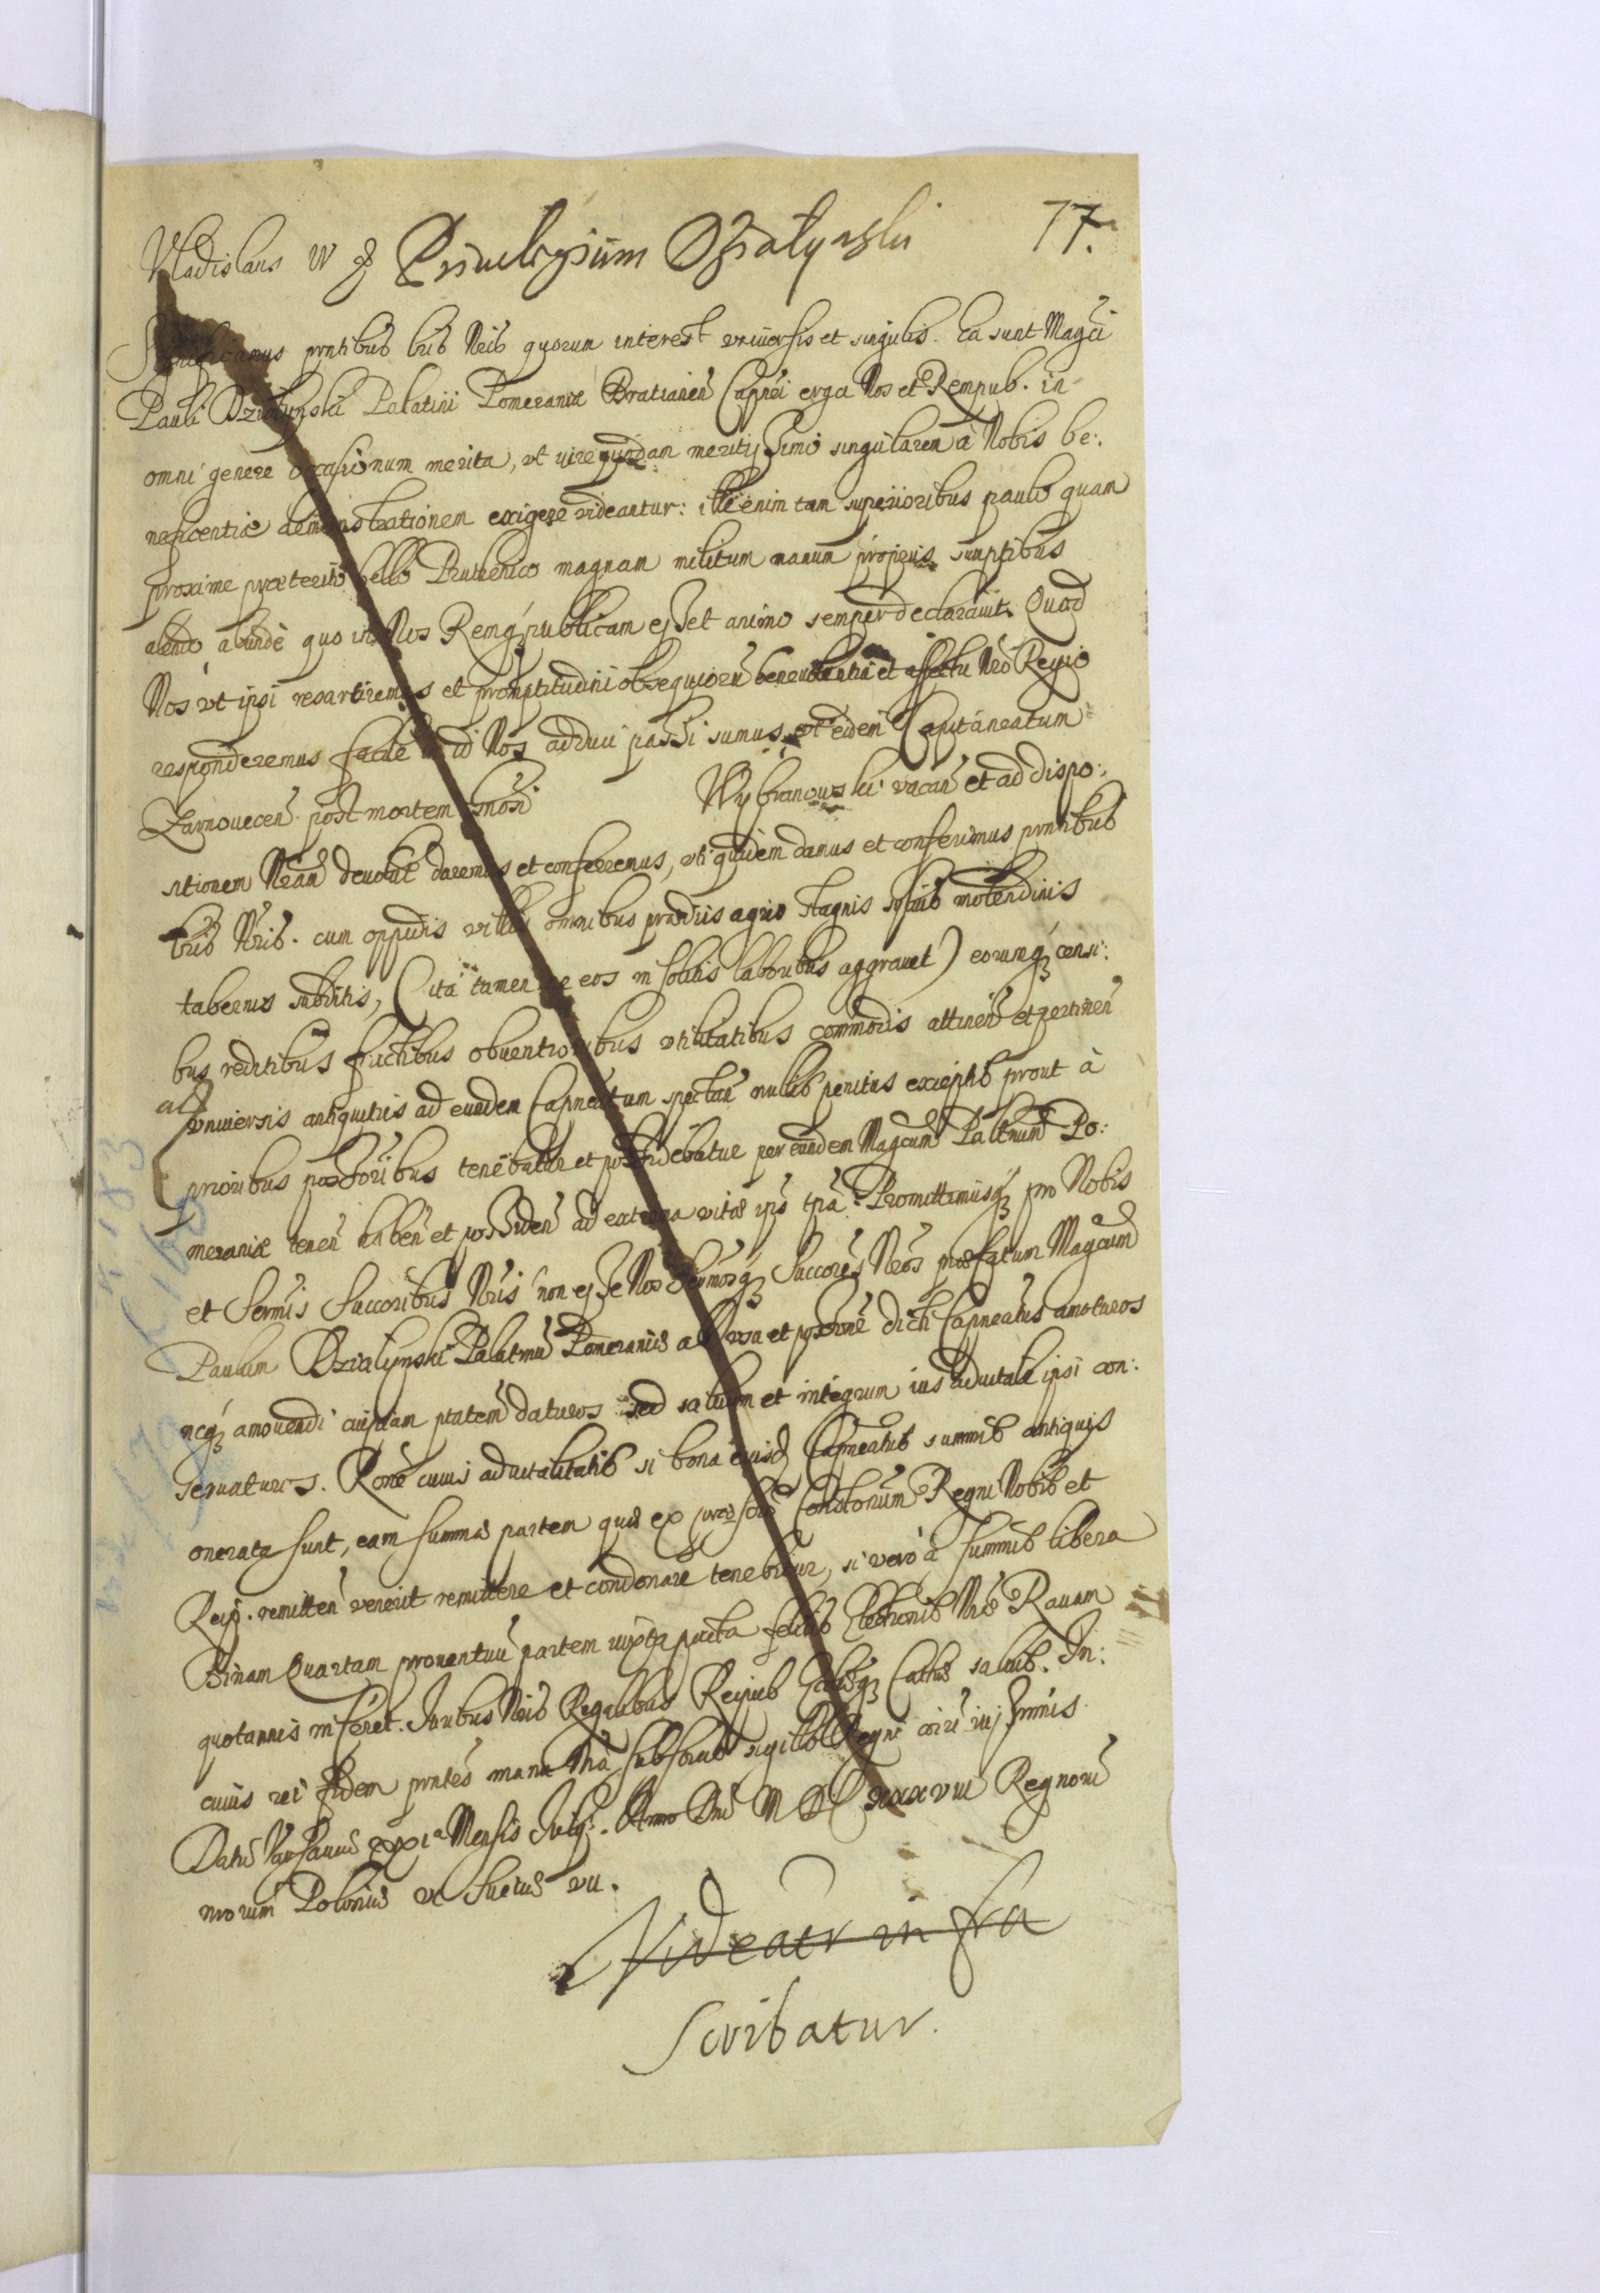 Vladislaus IV Priuilegium Dzialynski 77.
Significamus pntibus lris Nris quorum interest vniuersis et singulis. Ea sunt Magci
Pauli Dzialynski Palatini Pomeraniæ Bratianeñ Capnei erga Nos et Rempub. in
omni genere occasionum merita, vt meritissimo singularem à Nobis be:
neficentiæ demonstrationem exigere videantur: ille enim tam superioribus paulo quam
proxime præterito bello Prutenico magnam militum manum proprijs sumptibus
alendo abundè quo in Nos Remq publicam esset animo semper declarauit. Quod
Nos vt ipsi resartiremus et promptitudini obsequiorũ beneuolentia et affectu Nro Regio
responderemus facile id Nos adduci passi sumus, vt eidem Capitaneatum
Zarnovecen. post mortem Gnosi Wybranowski vacañ et ad dispo:
sitionem Nram deuolut daremus et conferremus, vti quidem damus et conferimus pntibus
lris Nris. cum oppidis villis omnibus prædiis agris stagnis siluis molendinis
tabernis subditis, (ita tamen ne eos insolitis laboribus aggrauet) eorumq censi:
bus reditibus fructibus obuentionibus vtilitatibus commodis attineñ et pertineñ
al
vniuersis antiquitus ad eundem Capneatum spectañ nullis penitus exceptis prout à
prioribus possoribus tenebatur et possidebatur per eundem Magcum Paltnum Po:
meraniæ teneñ habeñ et possideñ ad extrema vitæ ipsi tpa. Promittimusq pro Nobis
et Sermis Succoribus Nris non esse Nos Sermosq Succores Nros præfatum Magcum
Paulum Dzialynski Palatinũ Pomeraniæ ab vsu et possone dicti Capneatus amoturos
neq amouendi cuipiam ptatem daturos sed saluum et integrum ius aduitale ipsi con:
seruaturos. Rone cuius aduitalitatis si bona eiusd Capneatus summis antiquis
onerata sunt, eam summæ partem quæ ex Constonum Regni Nobis et
Reip. remitten venerit remittere et condonare tenebitur, si vero à summis libera
Binam Quartam prouentuũ partem iuxta pacta felicis Electionis Nræ Rauam
quotannis inferet. Iuribus Nris Regalibus Reipub Ecclæq Cattæ saluis. In:
cuius rei fidem pntes manu Nra subscrib sigillo Regni coiri iussimus.
Datũ Varsauiæ Mensis Julij. Anno Dni M DC XXXVIII Regnorũ
nrorum Poloniæ vt Sueciæ VII.
Videatr infra
Scribatur.